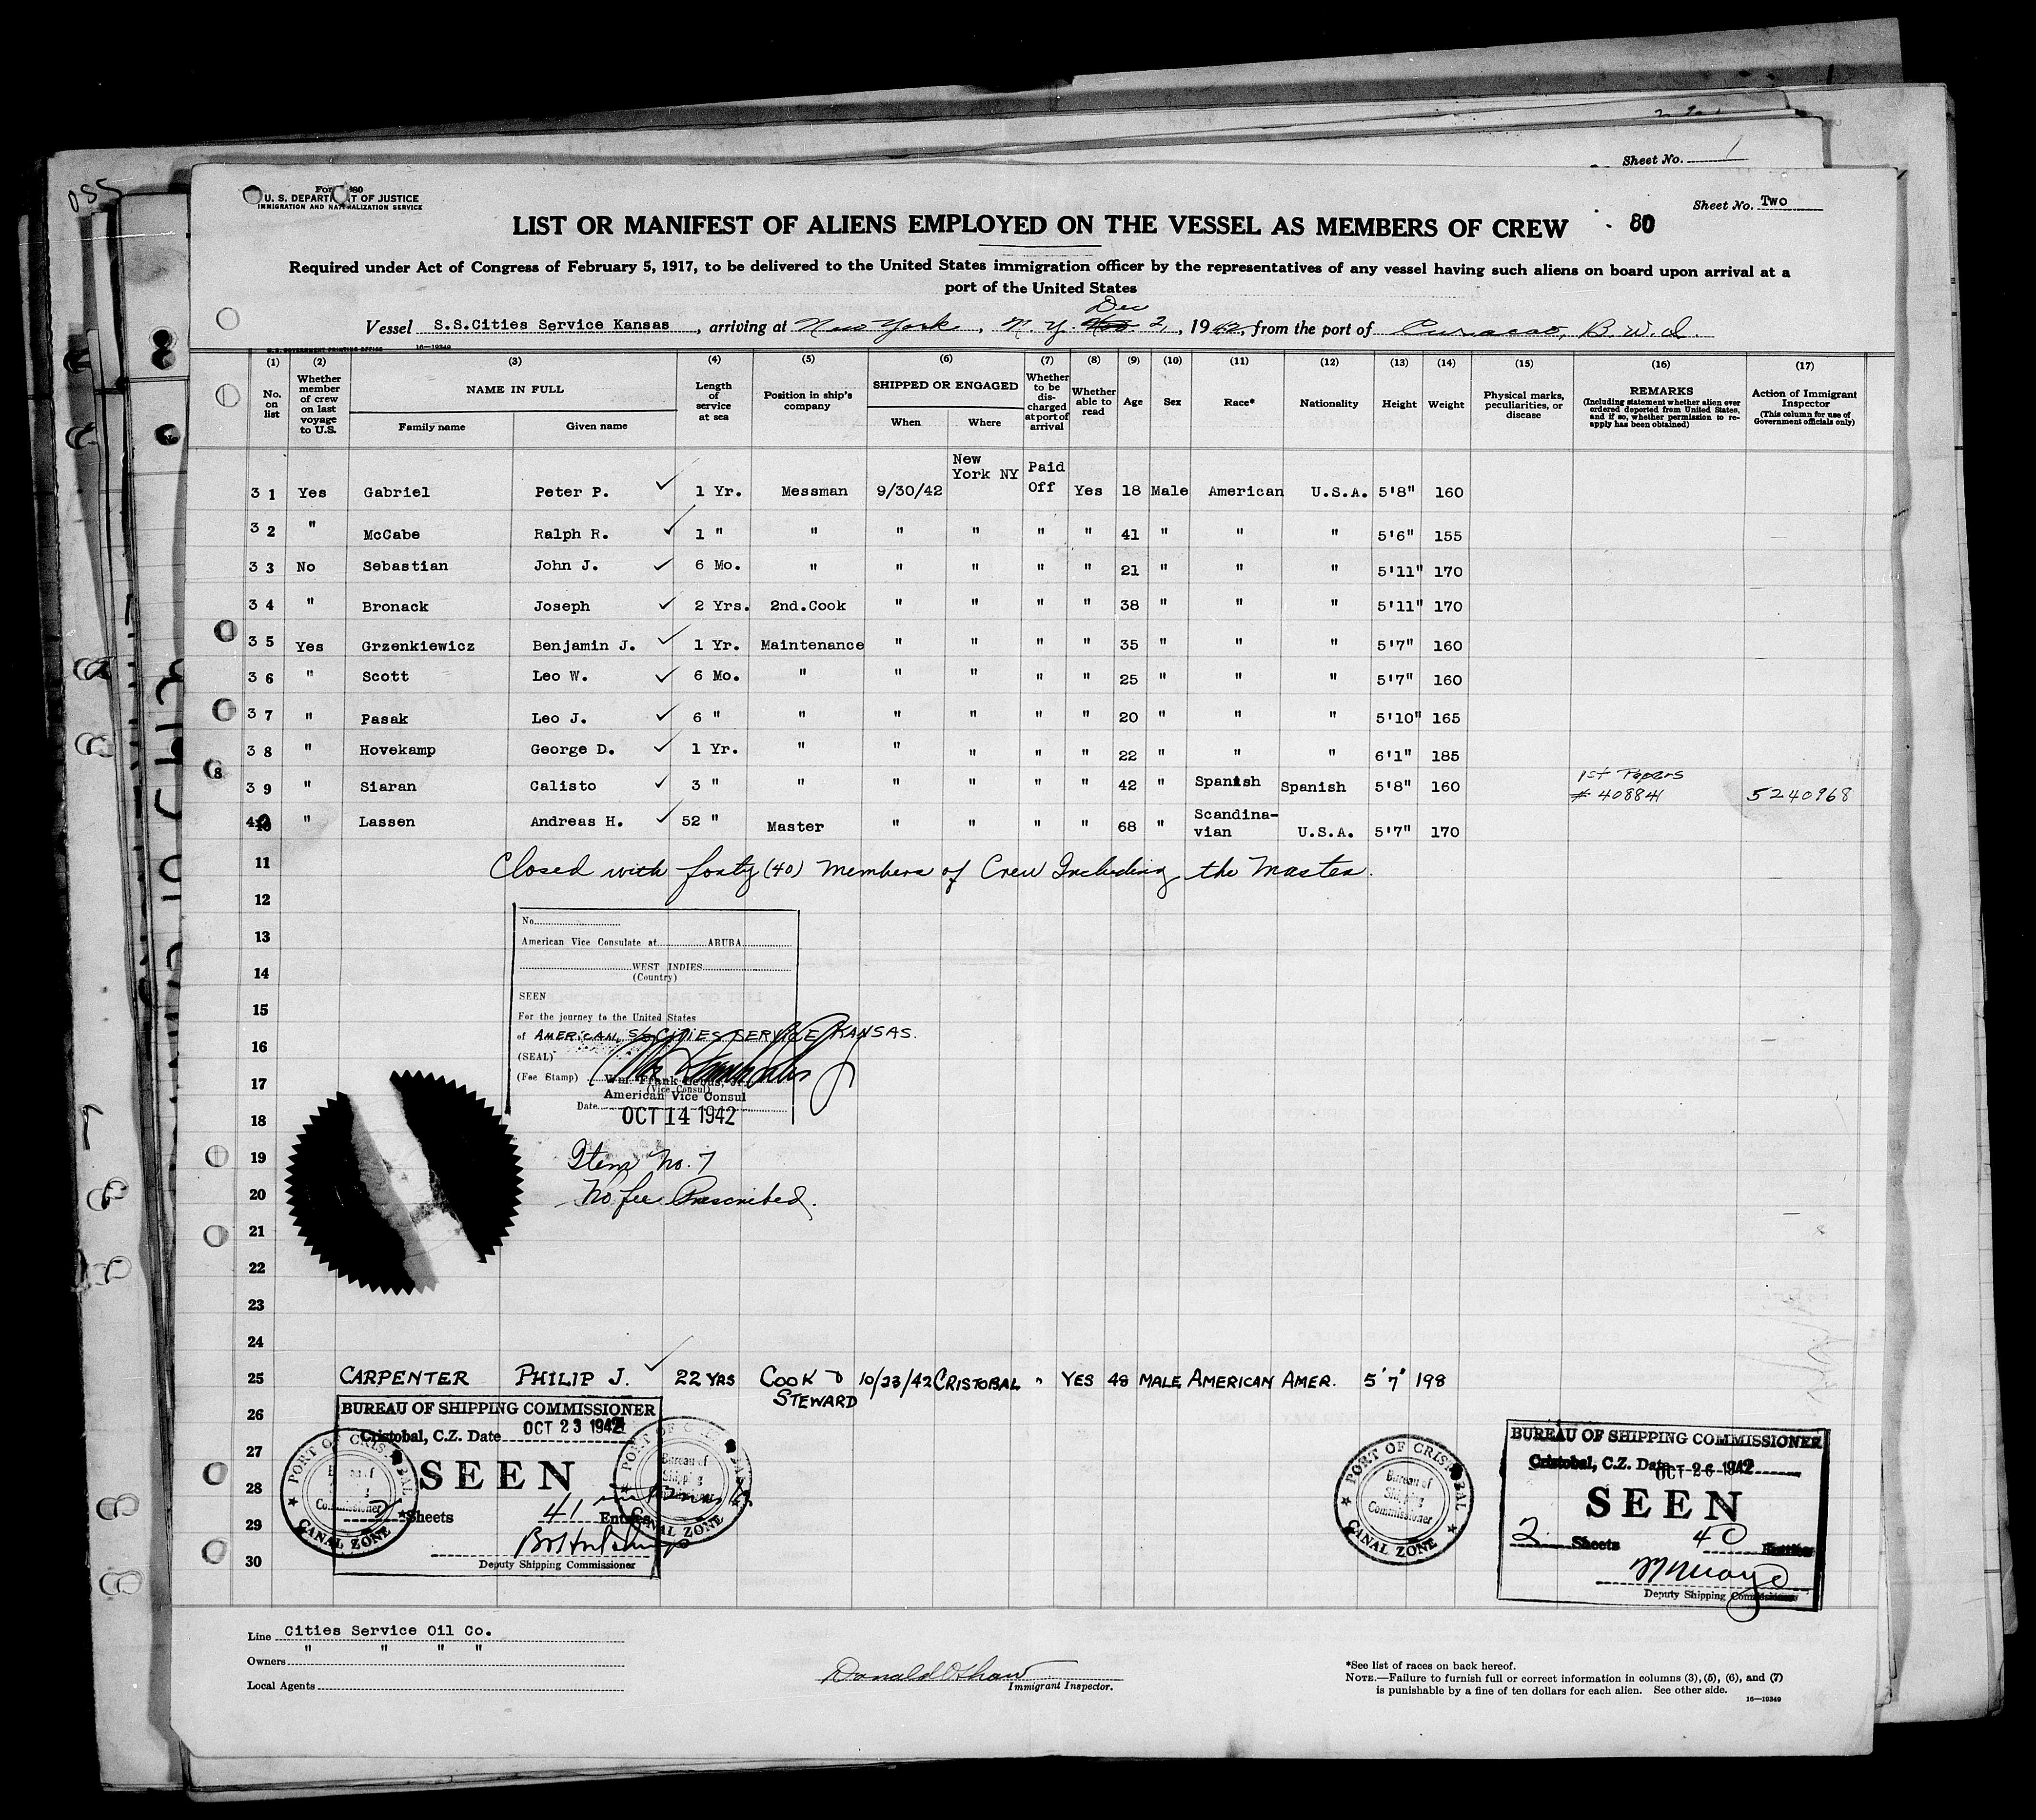 Sheet No. 1
U. S. DEPARTMENT OF JUSTICE
IMMIGRATION AND NATURALIZATION SERVICE
Sheet No. Two
LIST OR MANIFEST OF ALIENS EMPLOYED ON THE VESSEL AS MEMBERS OF CREW
80
Required under Act of Congress of February 5, 1917, to be delivered to the United States immigration officer by the representatives of any vessel having such aliens on board upon arrival at a
port of the United States
Dec
Vessel S.S.Cities Service Kansas, arriving at New York, N.Y. Nov 2, 1942, from the port of Curacao, B.W.I.
U.S. GOVERNMENT PRINTING OFFICE 16—19349
(1) (2) (3) (4) (5) (6) (7) (8) (9) (10) (11) (12) (13) (14) (15) (16) (17)
No. on list
Whether member of crew on last voyage to U.S.
NAME IN FULL
Family name
Given name
Length of service at sea
Position in ship's company
SHIPPED OR ENGAGED
When
Where
Whether to be discharged at port of arrival
Whether able to read
Age
Sex
Race*
Nationality
Height
Weight
Physical marks, peculiarities, or disease
REMARKS
(Including statement whether alien ever ordered deported from United States, and if so, whether permission to reapply has been obtained)
Action of Immigrant Inspector
(This column for use of Government officials only)
31 Yes Gabriel Peter P. 1 Yr. Messman 9/30/42 New York NY Paid Off Yes 18 Male American U.S.A. 5'8" 160
32 " McCabe Ralph R. 1 " " " " " " 41 " " " 5'6" 155
33 No Sebastian John J. 6 Mo. " " " " " 21 " " " 5'11" 170
34 " Bronack Joseph 2 Yrs. 2nd.Cook " " " " 38 " " " 5'11" 170
35 Yes Grzenkiewicz Benjamin J. 1 Yr. Maintenance " " " " 35 " " " 5'7" 160
36 " Scott Leo W. 6 Mo. " " " " " 25 " " " 5'7" 160
37 " Pasak Leo J. 6 " " " " " " 20 " " " 5'10" 165
38 " Hovekamp George D. 1 Yr. " " " " " 22 " " " 6'1" 185
39 " Siaran Calisto 3 " " " " " " 42 " Spanish Spanish 5'8" 160 1st Papers # 408841 5240968
40 " Lassen Andreas H. 52 " Master " " " " 68 " Scandina-vian U.S.A. 5'7" 170
11 Closed with forty (40) Members of Crew Including the Master.
12
13
14
15
16
17
18
19
20
21
22
23
24
No.
American Vice Consulate at ARUBA
WEST INDIES
(Country)
SEEN
For the journey to the United States
of AMERICAN S/S CITIES SERVICE KANSAS.
(SEAL)
(Fee Stamp)
(Vice Consul)
American Vice Consul
Date OCT 14 1942
Item No. 7
No fee Prescribed.
25 CARPENTER PHILIP J. 22 YRS COOK & STEWARD 10/23/42 CRISTOBAL " YES 48 MALE AMERICAN AMER. 5'7" 198
26
27
28
29
30
BUREAU OF SHIPPING COMMISSIONER
Cristobal, C.Z. Date OCT 23 1942
SEEN
2 Sheets 41 Entries
Deputy Shipping Commissioner
PORT OF CRISTOBAL
Bureau of Shipping Commissioner
CANAL ZONE
PORT OF CRISTOBAL
Bureau of Shipping Commissioner
CANAL ZONE
PORT OF CRISTOBAL
Bureau of Shipping Commissioner
CANAL ZONE
BUREAU OF SHIPPING COMMISSIONER
Cristobal, C.Z. Date OCT 26 1942
SEEN
2 Sheets 40 Entries
Deputy Shipping Commissioner
Line Cities Service Oil Co.
Owners " " " "
Local Agents
Donald O Shaw
Immigrant Inspector.
*See list of races on back hereof.
NOTE.—Failure to furnish full or correct information in columns (3), (5), (6), and (7)
is punishable by a fine of ten dollars for each alien. See other side.
16—19349